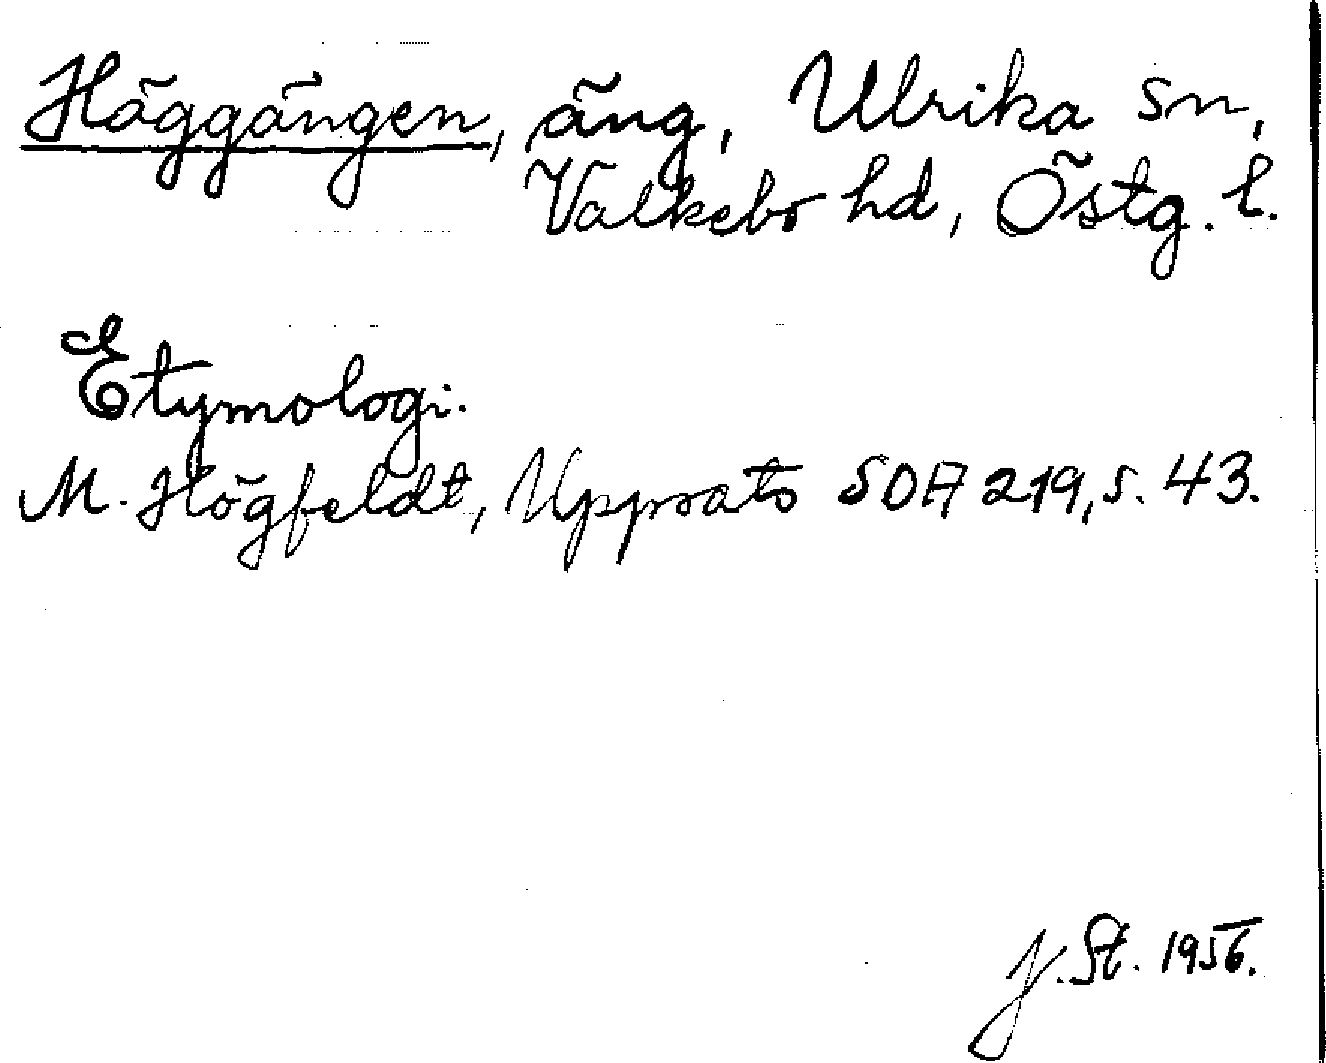 Häggängen, äng, Ulrika sn,
Valkebo hd, Östg. l.
Etymologi.
M. Högfeldt, Uppsats SOA 219, s. 43.
J. St. 1956.